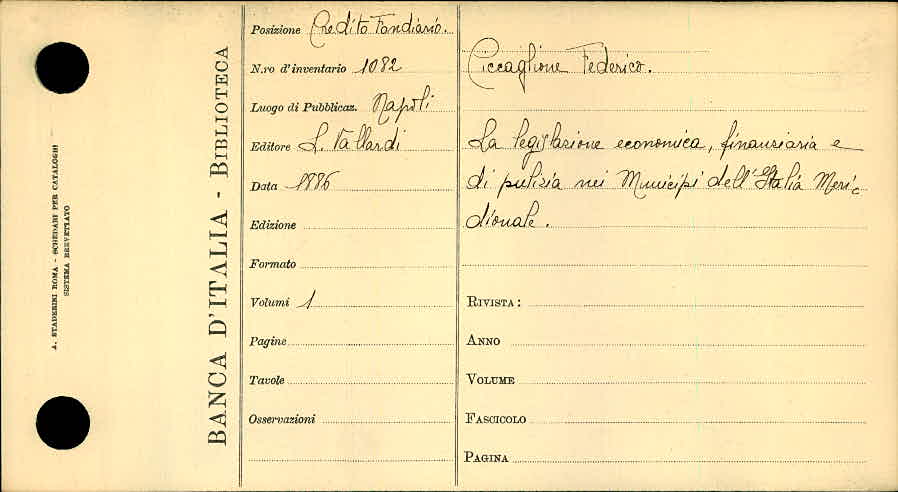 A. STADERINI ROMA - SCHEDARI PER CATALOGHI
SISTEMA BREVETTATO
BANCA D'ITALIA - BIBLIOTECA
Posizione Credito Fondiario.
N.ro d'inventario 1082
Luogo di Pubblicaz. Napoli
Editore L. Vallardi
Data 1886
Edizione
Formato
Volumi 1
Pagine
Tavole
Osservazioni
Ciccaglione Federico.
La legislazione economica, finanziaria e
di pulizia nei Municipi dell'Italia Meri=
dionale.
RIVISTA:
ANNO
VOLUME
FASCICOLO
PAGINA